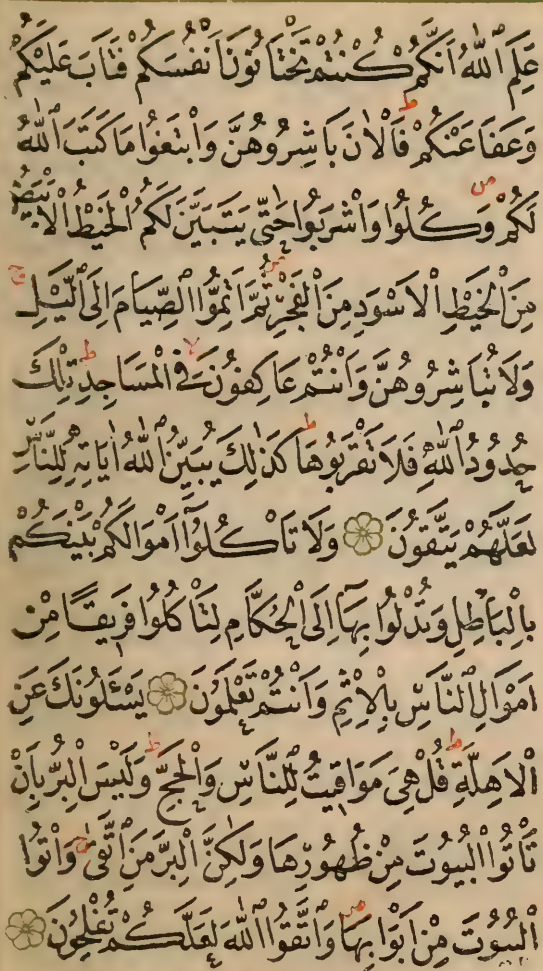 عَلِمَ ٱللّٰهُ اَنَّكُمْ كُنْتُمْ تَخْتَانُونَ اَنْفُسَكُمْ فَتَابَ عَلَيْكُمْ
وَعَفَا عَنْكُمْ ۖ فَالْاٰنَ بَاشِرُوهُنَّ وَابْتَغُوا مَا كَتَبَ ٱللّٰهُ
لَكُمْ وَكُلُوا وَاشْرَبُوا حَتّٰى يَتَبَيَّنَ لَكُمُ الْخَيْطُ الْاَبْيَضُ
مِنَ الْخَيْطِ الْاَسْوَدِ مِنَ الْفَجْرِ ثُمَّ اَتِمُّوا الصِّيَامَ اِلَى الَّيْلِ
وَلَا تُبَاشِرُوهُنَّ وَاَنْتُمْ عَاكِفُونَ فِى الْمَسَاجِدِ ط تِلْكَ
حُدُودُ ٱللّٰهِ فَلَا تَقْرَبُوهَا ط كَذٰلِكَ يُبَيِّنُ ٱللّٰهُ اٰيَاتِهٖ لِلنَّاسِ
لَعَلَّهُمْ يَتَّقُونَ وَلَا تَاْكُلُوٓا اَمْوَالَكُمْ بَيْنَكُمْ
بِالْبَاطِلِ وَتُدْلُوا بِهَآ اِلَى الْحُكَّامِ لِتَاْكُلُوا فَرِيقًا مِنْ
اَمْوَالِ النَّاسِ بِالْاِثْمِ وَاَنْتُمْ تَعْلَمُونَ يَسْـَٔلُونَكَ عَنِ
الْاَهِلَّةِ ط قُلْ هِىَ مَوَاقِيتُ لِلنَّاسِ وَالْحَجِّ ط وَلَيْسَ الْبِرُّ بِاَنْ
تَاْتُوا الْبُيُوتَ مِنْ ظُهُورِهَا وَلٰكِنَّ الْبِرَّ مَنِ اتَّقٰى ج وَاْتُوا
الْبُيُوتَ مِنْ اَبْوَابِهَا وَاتَّقُوا ٱللّٰهَ لَعَلَّكُمْ تُفْلِحُونَ